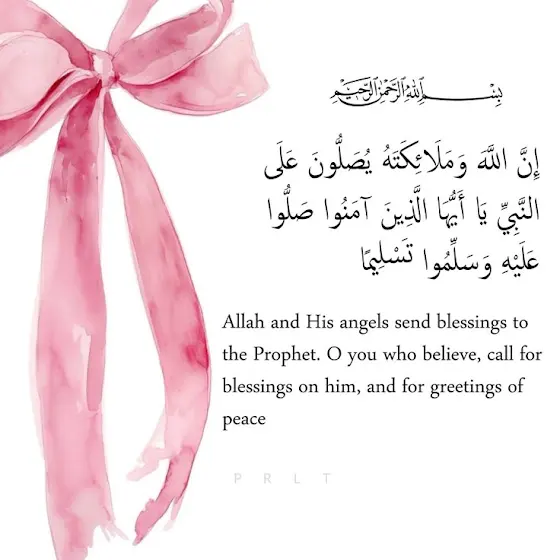 بِسْمِ اللهِ الرَّحْمٰنِ الرَّحِيْمِ
إِنَّ اللَّهَ وَمَلَائِكَتَهُ يُصَلُّونَ عَلَى
النَّبِيِّ يَا أَيُّهَا الَّذِينَ آمَنُوا صَلُّوا
عَلَيْهِ وَسَلِّمُوا تَسْلِيمًا
Allah and His angels send blessings to
the Prophet. O you who believe, call for
blessings on him, and for greetings of
peace
PRLT